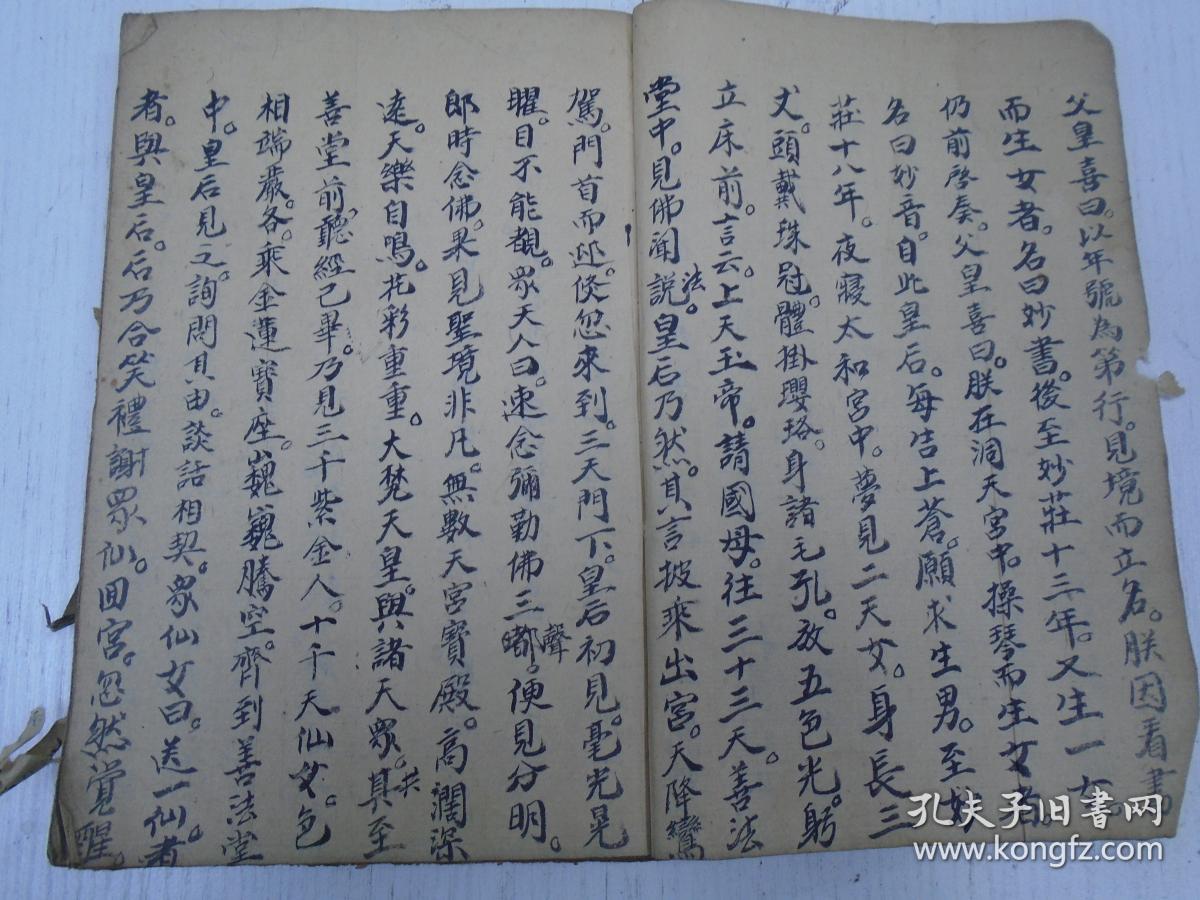 父皇喜曰。以年號為第行。見境而立名。朕因看書
而生女者。名曰妙書。後至妙莊十三年。又生一女。
仍前啓奏。父皇喜曰。朕在洞天宮中。操琴而生女者。
名曰妙音。自此皇后。每告上蒼。願求生男。至妙
莊十八年。夜寢太和宮中。夢見二天女。身長三
丈。頭戴珠冠。體掛瓔珞。身諸毛孔。放五色光。躬
立床前。言云。上天玉帝。請國母。往三十三天。善法
堂中。見佛聞說法。皇后乃然。其言披乘出宮。天降鸞
駕。門首而迎。倐忽來到。三天門下。皇后初見。毫光晃
曜。目不能覩。眾天人曰。速念彌勒佛三嘟聲。便見分明。
郎時念佛。果見聖境非凡。無數天宮寶殿。高濶深
遠。天樂自鳴。花彩重重。大梵天皇。與諸天眾。具共至
善堂前。聽經已畢。乃見三千紫金人。十千天仙女。色
相端嚴。各。乘金蓮寶座。巍巍騰空。齊到善法堂
中。皇后見之。詢問其由。談話相契。眾仙女曰。送一仙者
者。與皇后。后乃合笑禮謝眾仙。回宮。忽然覚醒。
孔夫子旧书网
www.kongfz.com